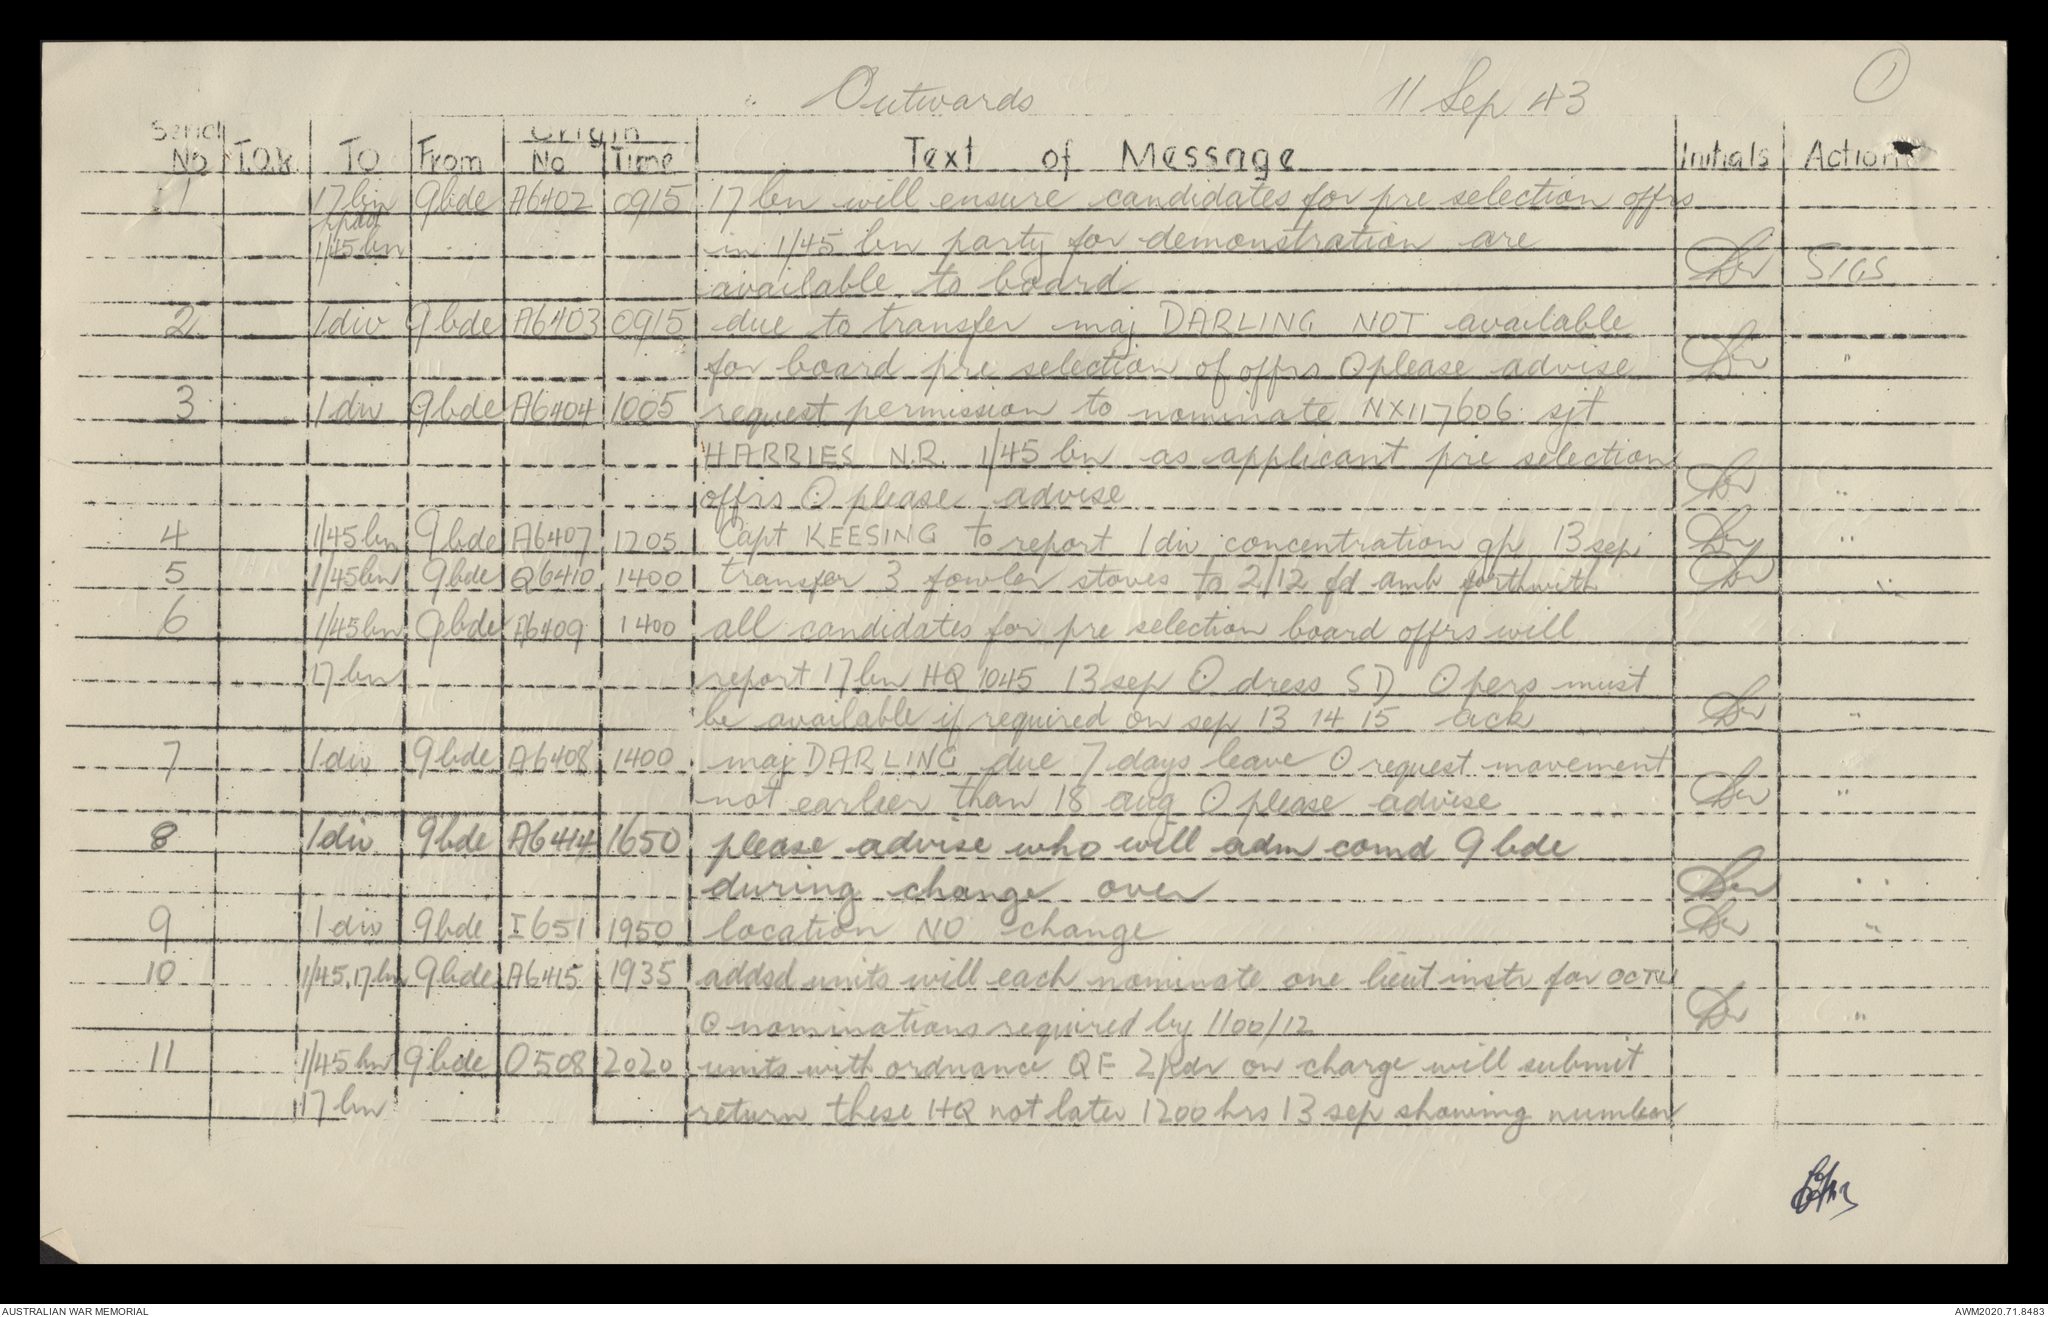 Outwards 11 Sep 43 1
Serial No T.O.R. TO From Origin No Time Text of Message Initials Action
1 17 bn 9 bde A6402 0915 17 bn will ensure candidates for pre selection offrs
rptd 1/45 bn in 1/45 bn party for demonstration are
available to board SIGS
2 1 div 9 bde A6403 0915 due to transfer maj DARLING NOT available
for board pre selection of offrs O please advise "
3 1 div 9 bde A6404 1005 request permission to nominate NX117606 sjt
HARRIES N.R. 1/45 bn as applicant pre selection
offrs O please advise "
4 1/45 bn 9 bde A6407 1205 Capt KEESING to report 1 div concentration gp 13 sep "
5 1/45 bn 9 bde Q6410 1400 transfer 3 fowler stoves to 2/12 fd amb forthwith "
6 1/45 bn 9 bde A6409 1400 all candidates for pre selection board offrs will
17 bn report 17 bn HQ 1045 13 sep O dress SD O pers must
be available if required on sep 13 14 15 ack "
7 1 div 9 bde A6408 1400 maj DARLING due 7 days leave O request movement
not earlier than 18 aug O please advise "
8 1 div 9 bde A6414 1650 please advise who will adm comd 9 bde
during change over "
9 1 div 9 bde I651 1950 location NO change "
10 1/45, 17 bn 9 bde A6415 1935 addsd units will each nominate one lieut instr for OCTU
O nominations required by 1100/12 "
11 1/45 bn 9 bde O508 2020 units with ordnance QF 2 pdr on charge will submit
17 bn return these HQ not later 1200 hrs 13 sep showing number
AUSTRALIAN WAR MEMORIAL AWM2020.71.8483